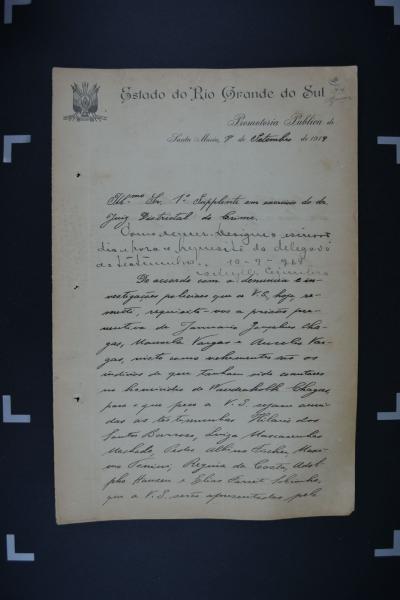 Estado do Rio Grande do Sul
Promotoria Publica de
Santa Maria, 9 de Setembro de 1918
Illmo Snr. 1º Supplente em exercicio do de
Juiz Districtal do Crime.
Como requer. Designe o escrivão
dia e hora e requisite do delegado
as testemunhas. 10-9-918
De accordo com a denuncia e in-
vestigações policiaes que a V.S., hoje, re-
metto, requisito-vos a prisão pre-
ventiva de Januario Cha-
gas, Manuela Vargas e Aurelio Var-
gas, visto como vehementes são os
indicios de que tenham sido coautores
no homicidio de Chagas,
para o que peço a V.S. sejam ouvi-
das as testemunhas Hilario dos
Santos Barroso, Luiza Mascarenhas
Machado, Pedro Albino
Regina da Costa, Adol-
pho Hansen e Elias Sobrinho,
que a V.S. serão apresentadas pelo